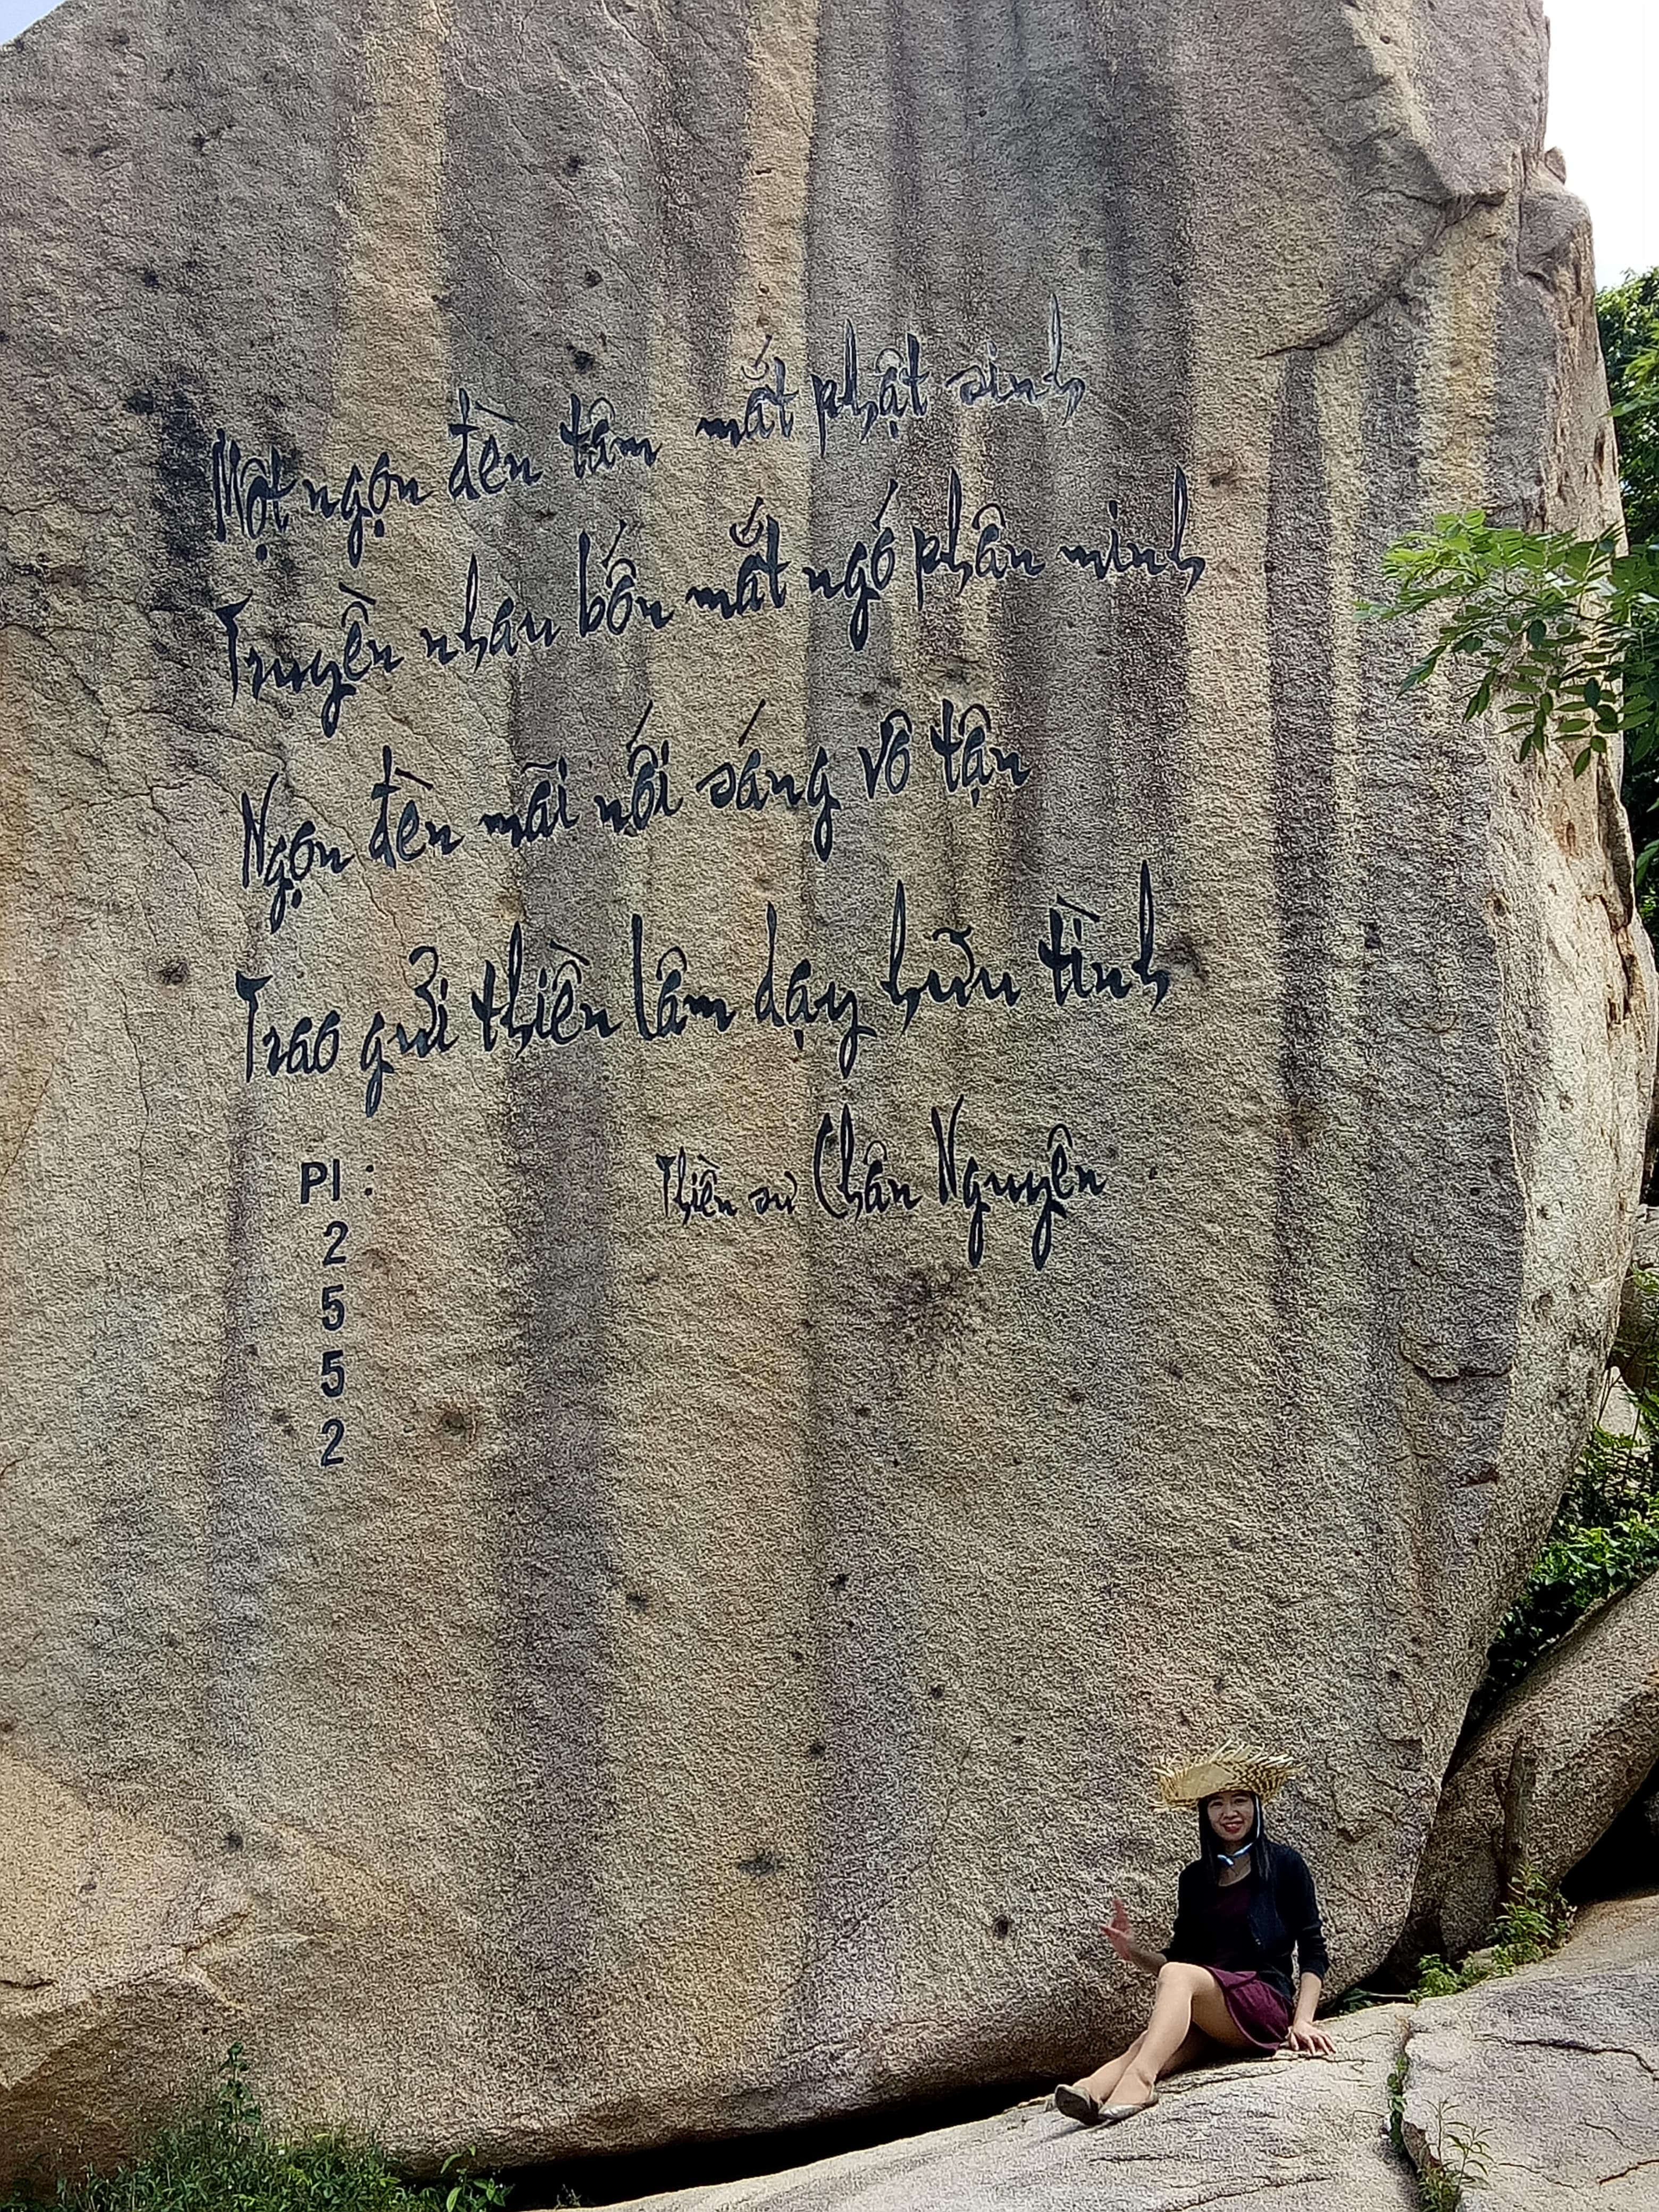 Một ngọn đèn tâm mắt phật sinh
Truyền nhau bốn mắt ngó phân minh
Ngọn đèn mãi nối sáng vô tận
Trao gửi thiền lâm dạy hữu tình
Thiền sư Chân Nguyên
Pl :
2
5
5
2